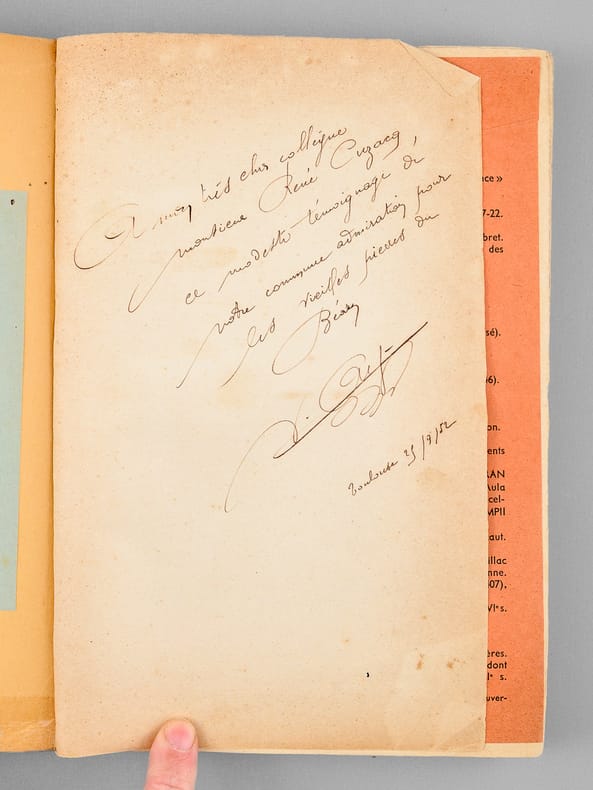 A mon très cher collègue
monsieur René Cuzacq,
ce modeste témoignage de
notre commune admiration pour
les vieilles pierres du
Béarn
Toulouse 25/9/52
nce »
7-22.
bret.
des
sé).
6).
on.
ents
RAN
Aula
cel-
MPII
aut.
illac
enne.
07).
VIe s.
ères.
dont
Ie s.
uver-